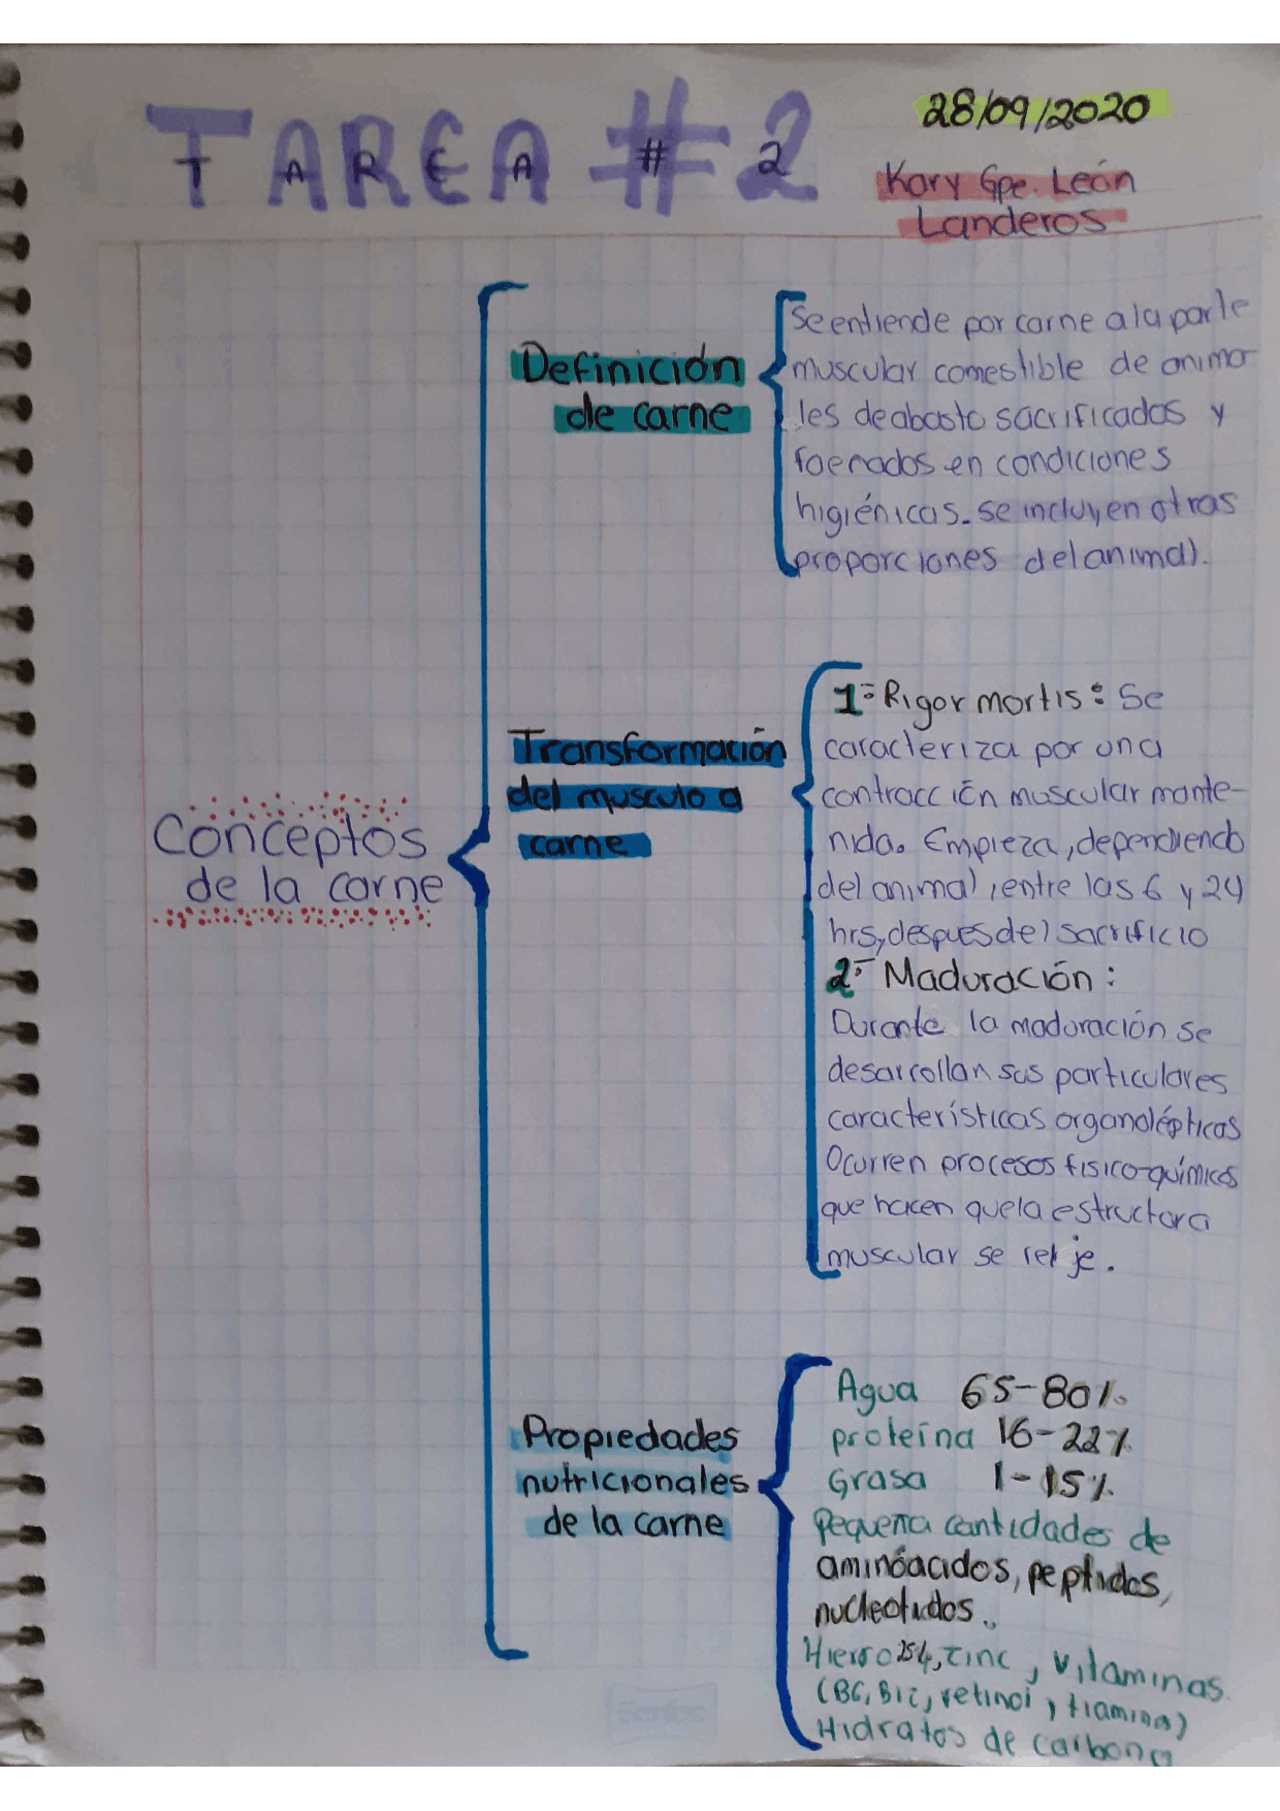 TAREA # 2
28/09/2020
Kory Gpe. León
Landeros
Conceptos
de la carne
Definición
de carne
Se entiende por carne a la parte
muscular comestible de anima
les de abasto sacrificados y
faenados en condiciones
higiénicas. se incluyen otras
proporciones del animal.
Transformación
del musculo a
carne
1- Rigor mortis: Se
caracteriza por una
contracción muscular mante-
nida. Empieza, dependiendo
del animal, entre las 6 y 24
hrs, despues del sacrificio
2- Maduración:
Durante la maduración se
desarrollan sus particulares
características organolépticas
Ocurren procesos fisico-químicos
que hacen que la estructura
muscular se rel je.
Propiedades
nutricionales
de la carne
Agua 65-80%
proteína 16-22%
Grasa 1-15%
pequeña cantidades de
aminóacidos, peptidos,
nucleotidos.
Hierro 254, zinc, vitaminas
(B6, B12, retinol, tiamina)
Hidratos de carbono